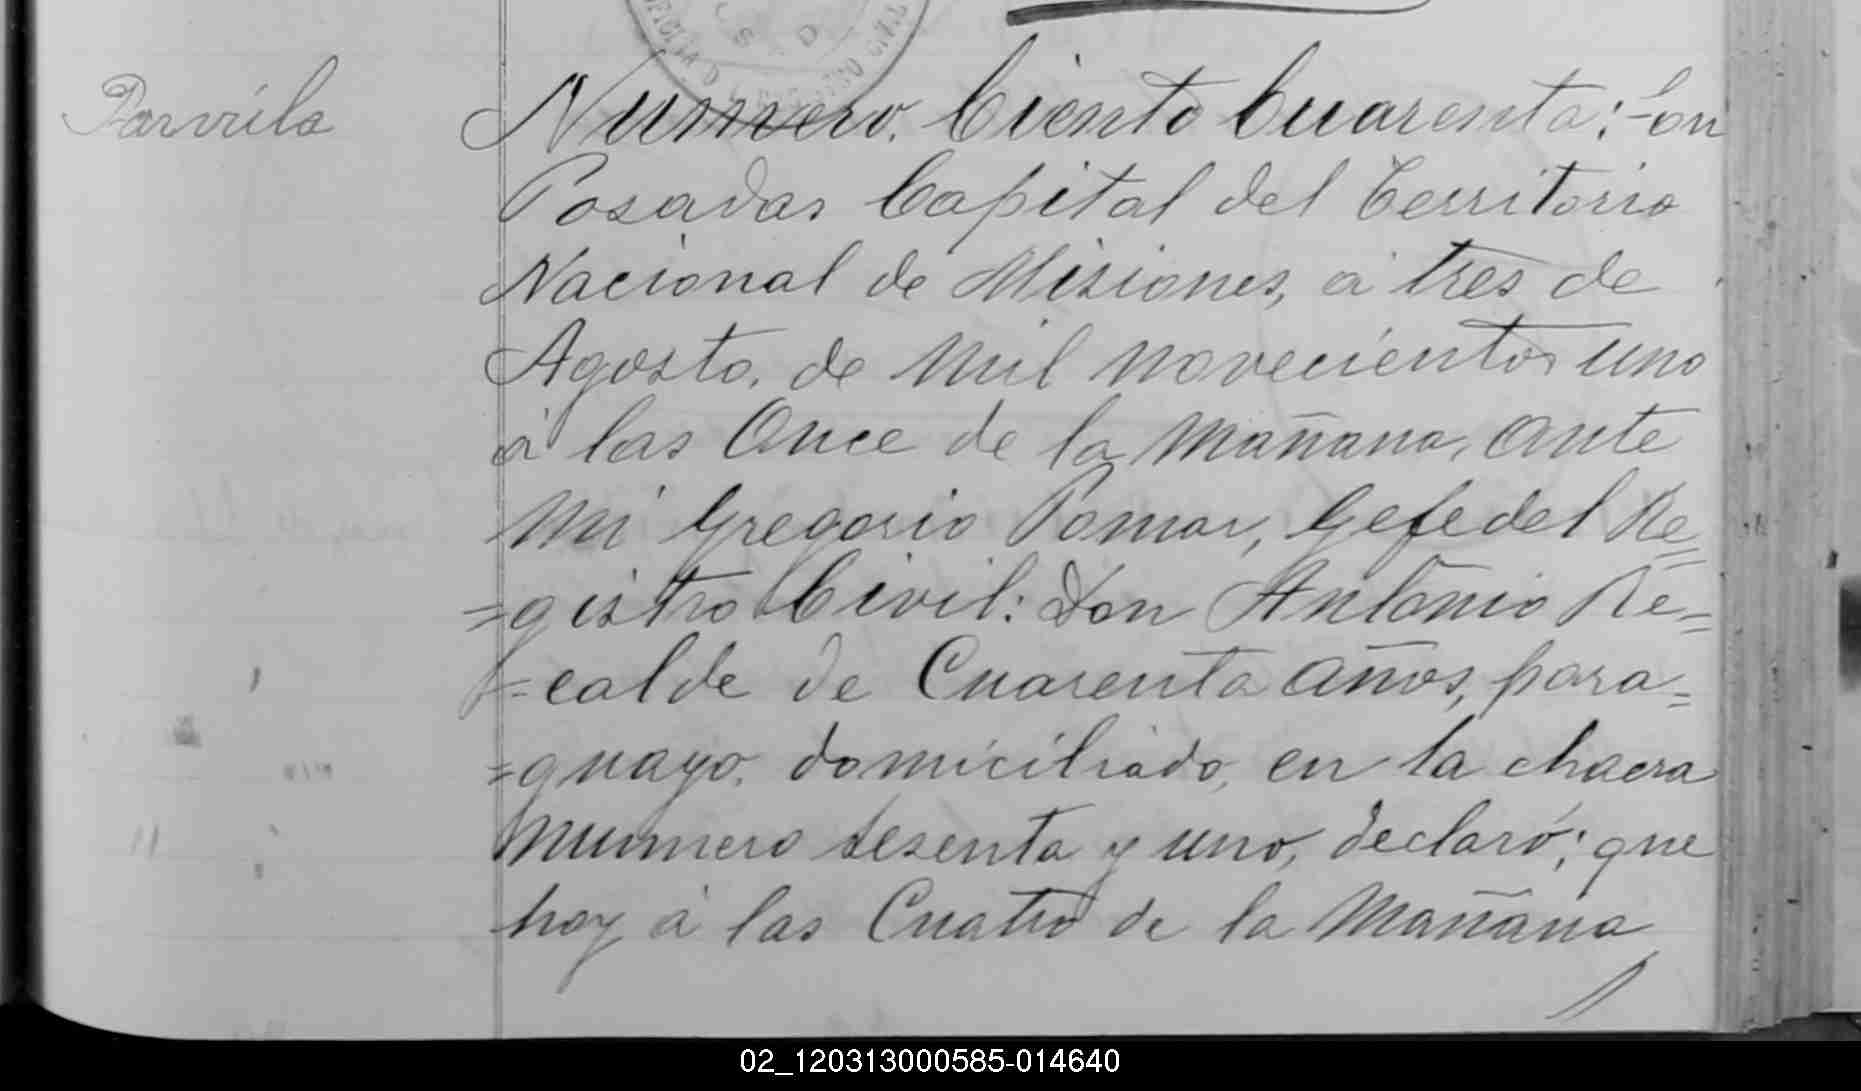 OFICINA D REGISTRO CIVIL
Parvula
Numero. Ciento Cuarenta: En
Posadas Capital del Territorio
Nacional de Misiones, á tres de
Agosto, de Mil novecientos uno
á las Once de la Mañana, ante
Mi Gregorio Pomar, Gefe del Re=
=gistro Civil: Don Antonio Re=
=calde de Cuarenta años, para=
=guayo, domiciliado, en la chacra
Nummero sesenta y uno, declaró; que
hoy á las Cuatro de la Mañana
02_120313000585-014640